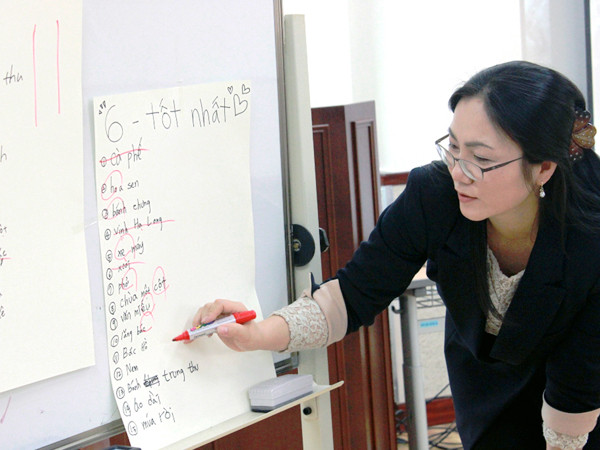 thu
6 - tốt nhất
① cà phê
② hoa sen
③ bánh chưng
④ Vịnh Hạ Long
⑤ xe máy
⑥
⑦ phở
⑧ chùa một cột
⑨ văn miếu
⑩ lăng bác
⑪ Bác Hồ
⑫ Nem
⑬ Bánh trung thu
⑭ áo dài
⑮ múa rối